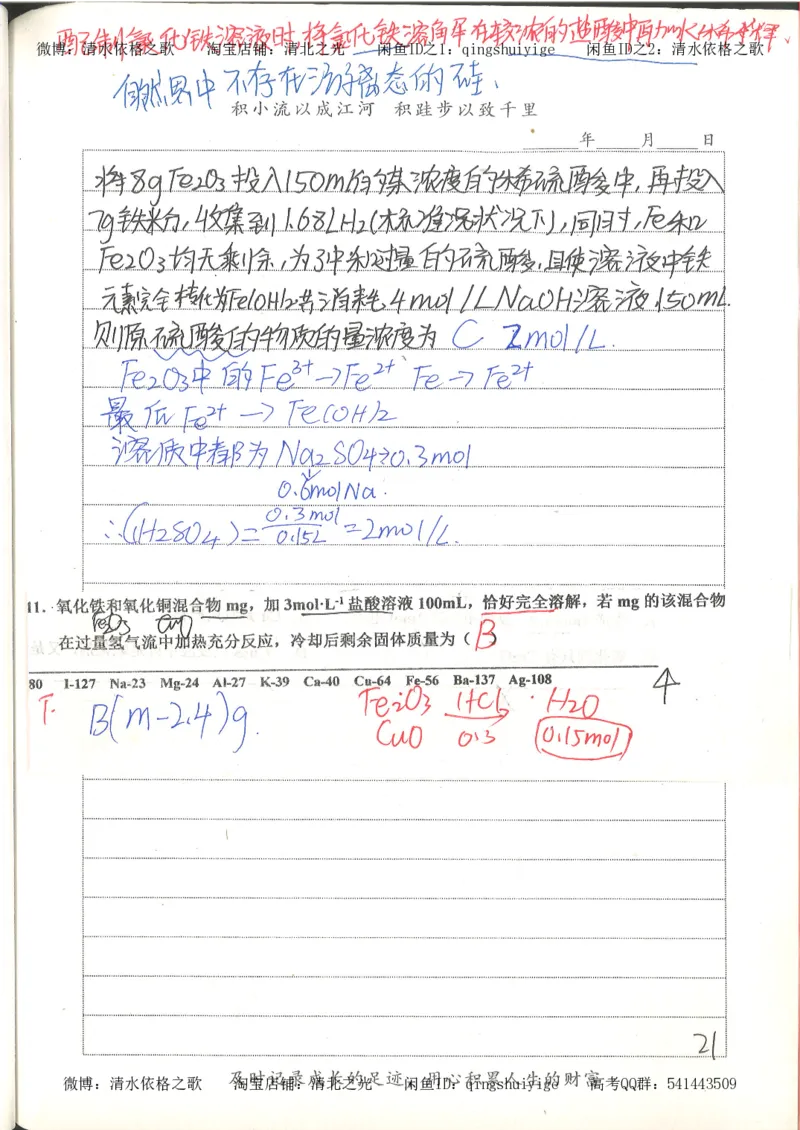 配制氯化铁溶液时,将氯化铁溶解在较浓的盐酸中再加水稀释.
微博：清水依格之歌 淘宝店铺：清北之光 闲鱼ID之1：qingshuiyige 闲鱼ID之2：清水依格之歌
自然界中不存在游离态的硅、
积小流以成江河 积跬步以致千里
年 月 日
将8gFe2O3投入150mL的某浓度的稀硫酸中,再投入
7g铁粉,收集到1.68LH2(标准状况下),同时,Fe和
Fe2O3均无剩余,为了中和过量的硫酸,且使溶液中铁
元素完全转化为Fe(OH)2共消耗4mol/LNaOH溶液150mL.
则原硫酸的物质的量浓度为 C 2mol/L.
Fe2O3中的Fe3+→Fe2+ Fe→Fe2+
最后Fe2+→Fe(OH)2
溶质中都为Na2SO4⇒0.3mol
0.6molNa.
∴c(H2SO4)=0.3mol/0.15L=2mol/L.
11．氧化铁和氧化铜混合物 mg，加 3mol·L-1 盐酸溶液 100mL，恰好完全溶解，若 mg 的该混合物
Fe2O3 CuO
在过量氢气流中加热充分反应，冷却后剩余固体质量为（ B ）
80 I-127 Na-23 Mg-24 Al-27 K-39 Ca-40 Cu-64 Fe-56 Ba-137 Ag-108
B(m-2.4)g.
Fe2O3 HCl H2O
CuO 0.3 0.15mol
21
及时记录成长的足迹 用心积累人生的财富
微博：清水依格之歌 淘宝店铺：清北之光 闲鱼ID：qingshuiyige 高考QQ群：541443509